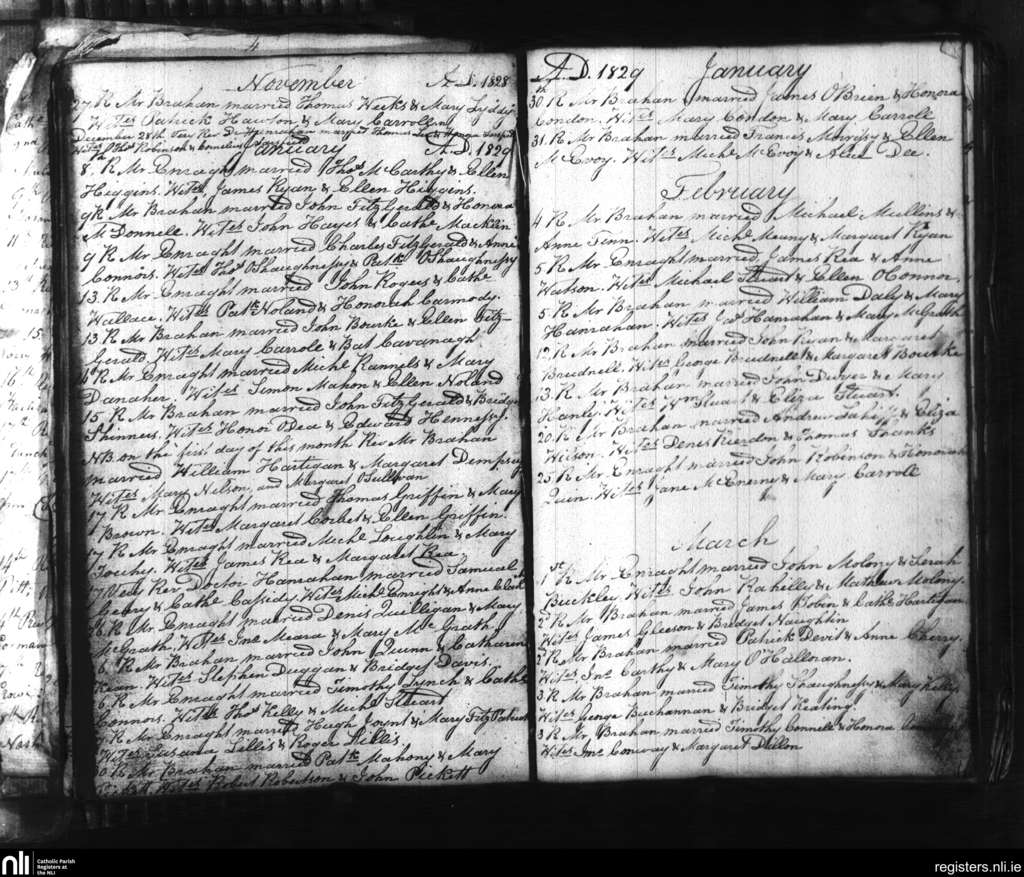 November A.D. 1828
27 R Mr Brahan married Thomas Weeks & Mary Lyddy
Wites Patrick Hawton & Mary Carroll
December 28th Very Rev Dr Hanrahan married Thomas
Wites Thos Robinson & Cornelius
January A.D. 1829
8th R Mr Enraght married Thos McCarthy & Ellen
Higgins. Wites James Ryan & Ellen Higgins.
9 R Mr Brahan married John FitzGerald & Honora
McDonnell. Wites John Hayes & Cathe Macklin
9 R Mr Enraght married Charles FitzGerald & Anne
Connors. Wites Thos OShaughnessy & Patk OShaughnessy
13. R Mr Enraght married John Rogers & Cathe
Wallace. Wites Patk Noland & Honorah Carmody.
13. R Mr Brahan married John Bourke & Ellen Fitz-
Gerald. Wites Mary Carrole & Bat Cavanagh
R Mr Enraght married Michl Rannels & Mary
Danaher. Wites Simon Mahon & Ellen Noland
15. R Mr Brahan married John FitzGerald & Bridget
Skinners. Wites Honor ODea & Edward Hennessy.
NB on the first day of this month Rev Mr Brahan
married William Hartigan & Margaret Dempsey
Wites Mary Nelson, and Margaret OSullivan
17 R Mr Enraght married Thomas Griffin & Mary
Brown. Wites Margaret Corbet & Ellen Griffin.
17 R Mr Enraght married Michl Loughlin & Mary
Touhy. Wites James Rea & Margaret Rea
17 Very Rev Doctor Hanrahan married Samuel
& Cathe Cassidy. Wites Michl Enraght & Anne
26 R Mr Enraght married Denis Quilligan & Mary
McGrath. Wites Jno Meara & Mary McGrath.
26 R Mr Brahan married John Quinn & Catharine
Kean. Wites Stephen Duggan & Bridget Davis.
26 R Mr Enraght married Timothy Lynch & Cathe
Connors. Wites Thos Kelly & Michl Stuart
R Mr Enraght married Hugh Joynt & Mary FitzPatrick
Wites Susana Lillis & Roger Lillis.
30 R Mr Brahan married Patk Mahony & Mary
Wites Robert Robertson & John Pickett
A.D. 1829 January
30th R Mr Brahan married James OBrien & Honora
Condon. Wites Mary Condon & Mary Carroll
31 R Mr Brahan married Francis Morrissy & Ellen
McEvoy. Wites Michl McEvoy & Alice Dee.
February
4 R Mr Brahan married Michael Mullins &
Anne Fenn. Wites Michl Meany & Margaret Ryan
5 R Mr Enraght married James Rea & Anne
Watson. Wites Michael Stuart & Ellen OConnor,
5. R Mr Brahan married William Daly & Mary
Hanrahan. Wites Jas Hanrahan & Mary McGrath
12 R Mr Brahan married John Ryan & Margaret
Brudnell. Wites George Brudnell & Margaret Bourke
13. R Mr Brahan married John Dwyer & Mary
Hanly. Wites Wm Stuart & Eliza Stuart.
20. R Mr Brahan married Andrew Lahiff & Eliza
Wilson. Wites Denes Reardon & Thomas Shanks
25 R Mr Enraght married John Robinson & Honorah
Quin. Wites Jane McEnerny & Mary Carroll
March
1st R Mr Enraght married John Molony & Sarah
Buckley. Wites John Rahilly & Mathew Molony.
2d R Mr Brahan married James Tobin & Cathe Hartigan
Wites James Gleeson & Bridget Naughtin
2 R Mr Brahan married Patrick Devit & Anne Cherry.
Wites Jno Carthy & Mary O'Halloran.
3 R Mr Brahan married Timothy Shaughnessy & Mary Kelly.
Wites George Buchannan & Bridget Keating.
3 R Mr Brahan married Timothy Connell & Honora
Wites Jno Conway & Margaret Dillon
nli
Catholic Parish
Registers at
the NLI
registers.nli.ie